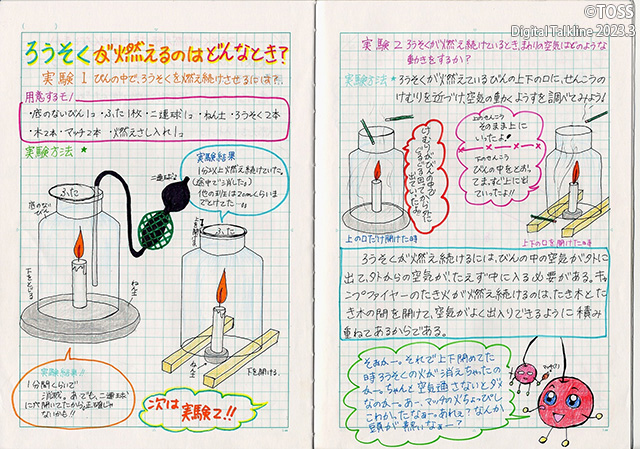 ©TOSS
Digital Talkline 2023.3
ろうそくが燃えるのはどんなとき?
実験1 びんの中で、ろうそくを燃え続けさせるには?
用意するモノ
・底のないびん1コ・ふた1枚・二連球1コ・ねん土・ろうそく2本
・木2本・マッチ2本 ・燃えさし入れ1コ
実験方法 *
ふた
底のない
びん
二連球
下をとじる
ねん土
実験結果
1分以上燃え続けていた。
(途中で消した。)
ふた
ねん土
下を開ける。
1分間くらいで
消滅。あ、でも、二連球が
ないかも!!
次は実験2!!
実験2 ろうそくが燃え続けているとき、まわりの空気はどのような
動きをするか?
実験方法 * ろうそくが燃えているびんの上下の口に、せんこうの
けむりを近づけ、空気の動くようすを調べてみよう!
けむりがびんの中で
ぐるぐる回ってから外に
出ていったよ。
上のせんこう
そのまま上に
いったよ
下のせんこう
びんの中をとお
てまっすぐ上に出
ていったよ!!
上の口だけ開けた時
上下の口を開けた時
ろうそくが燃え続けるには、びんの中の空気が外に
出て、外からの空気が、たえず中に入る必要がある。キャ
ンプファイヤーのたき火が燃え続けるのは、たき木とた
き木の間を開けて、空気がよく出入りできるように積み
重ねてあるからである。
そおかー。それで上下閉めてた
時ろうそくの火が消えちゃったの
かー。ちゃんと空気通さないとダメ
なのかー。あー、マッチの火ちょっぴし
こわかったなぁー。あれぇ?なんか
頭が熱いなぁー?